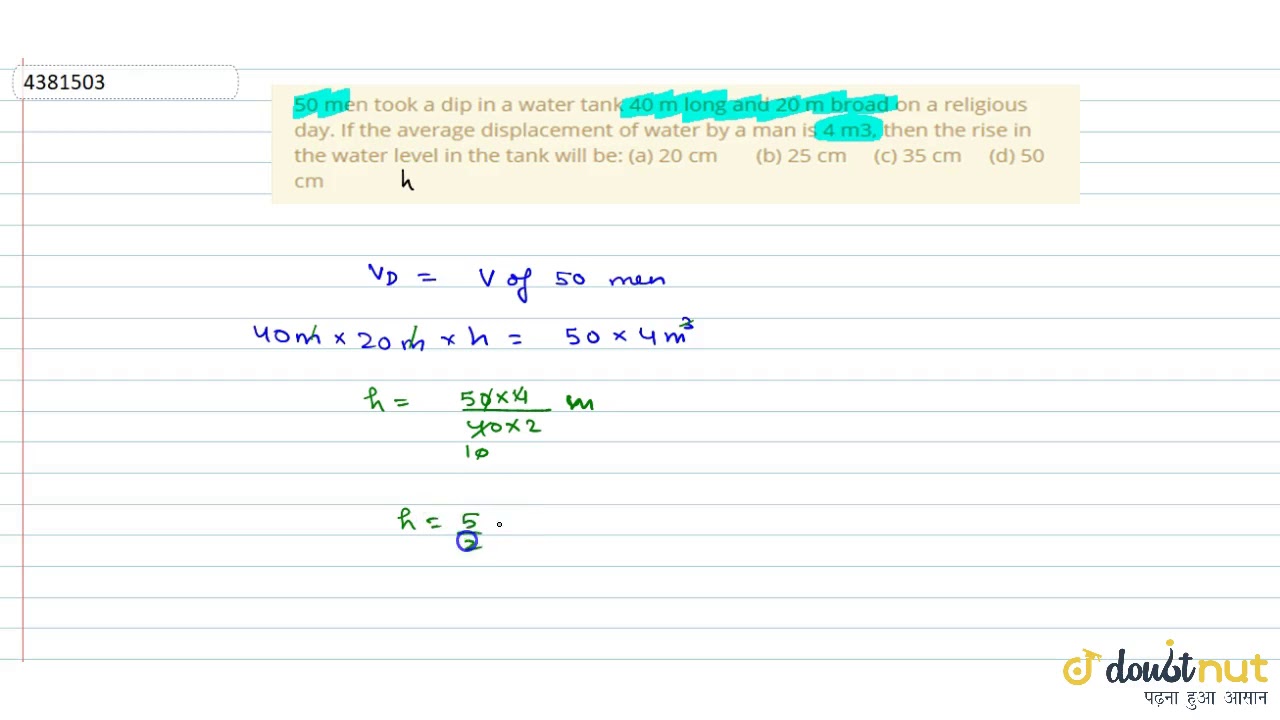 4381503
50 men took a dip in a water tank 40 m long and 20 m broad on a religious
day. If the average displacement of water by a man is 4 m3, then the rise in
the water level in the tank will be: (a) 20 cm (b) 25 cm (c) 35 cm (d) 50
cm h
VD = V of 50 men
40m × 20m × h = 50 × 4m³
h = 50×4 m
40×2
10
h = 5
2
doubtnut
पढ़ना हुआ आसान